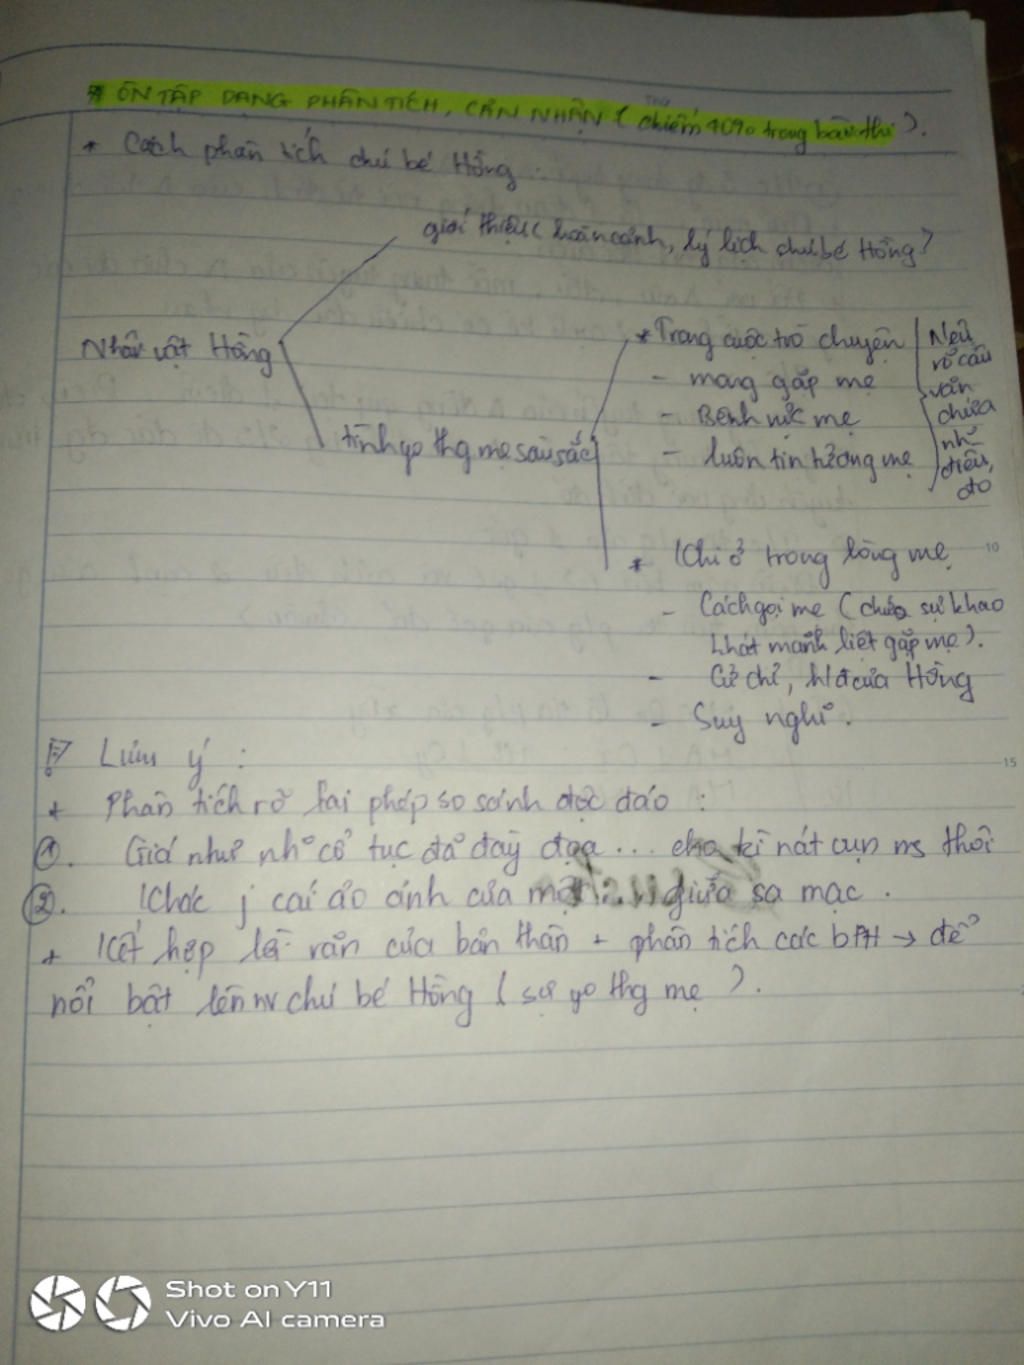 * ÔN TẬP DẠNG PHÂN TÍCH, CẢM NHẬN ( chiếm 40% trong bài thi ).
* Cách phân tích chú bé Hồng :
giới thiệu ( hoàn cảnh, lý lịch chú bé Hồng )
Nhân vật Hồng
tình yo thg mẹ sâu sắc
* Trong cuộc trò chuyện
- mong gặp mẹ
- Bênh vực mẹ
- luôn tin tưởng mẹ
Nêu
rõ câu
văn
chứa
nh~
điều
đó
* Khi ở trong lòng mẹ
- Cách gọi mẹ ( chứa sự khao
khát mãnh liệt gặp mẹ ).
- Cử chỉ, hđ của Hồng
- Suy nghĩ.
Lưu ý :
+ Phân tích rõ hai phép so sánh độc đáo :
①. Giá như nh~ cổ tục đã đày đọa ... cho kì nát vụn ms thôi
②. Khác j cái ảo ảnh của giữa sa mạc .
+ Kết hợp lời văn của bản thân + phân tích các bPNT → để
nổi bật lên nv chú bé Hồng ( sự yo thg mẹ ).
Shot on Y11
Vivo AI camera